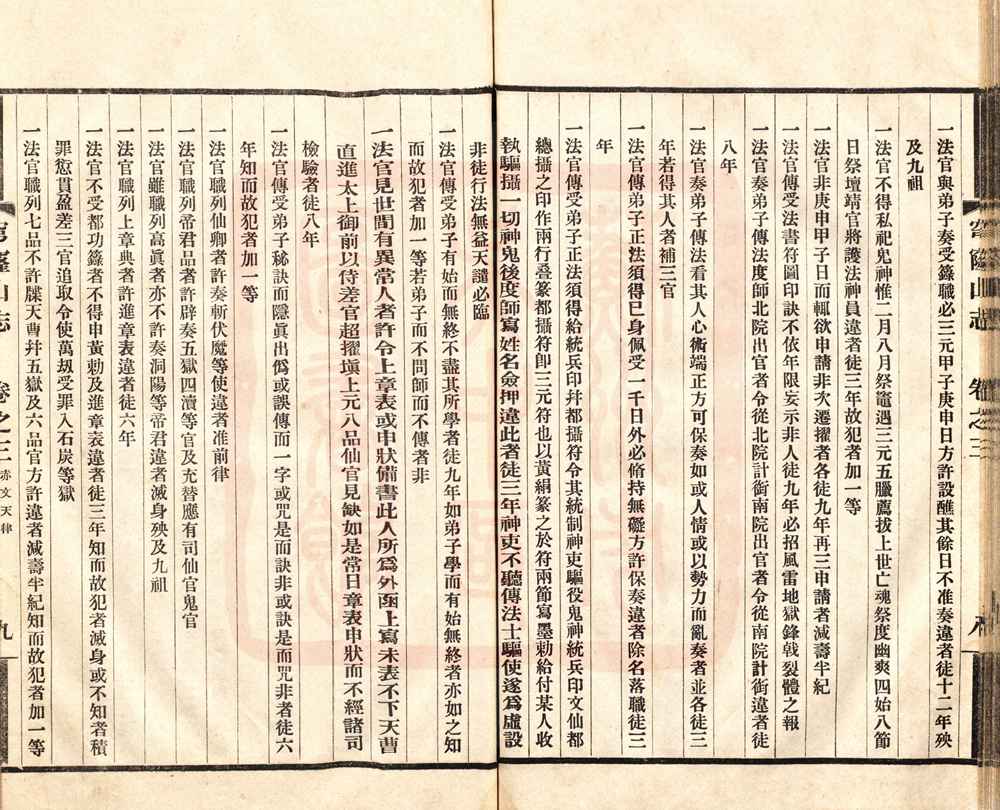 一法官與弟子奏受籙職必三元甲子庚申日方許設醮其餘日不准奏違者徒十二年殃
及九祖
一法官不得私祀鬼神惟二月八月祭竈遇三元五臘薦拔上世亡魂祭度幽爽四始八節
日祭壇靖官將護法神員違者徒三年故犯者加一等
一法官非庚申甲子日而輒欲申請非次遷擢者各徒九年再三申請者減壽半紀
一法官傳受法書符圖印訣不依年限妄示非人徒九年必招風雷地獄鋒戟裂體之報
一法官奏弟子傳法度師北院出官者令從北院計銜南院出官者令從南院計銜違者徒
八年
一法官奏弟子傳法看其人心術端正方可保奏如或人情或以勢力而亂奏者並各徒三
年若得其人者補三官
一法官傳弟子正法須得已身佩受一千日外必脩持無礙方許保奏違者除名落職徒三
年
一法官傳受弟子正法須得給統兵印幷都攝符令其統制神吏驅役鬼神統兵印文仙都
總攝之印作兩行疊篆都攝符卽三元符也以黃絹篆之於符兩節寫墨勅給付某人收
執驅攝一切神鬼後度師寫姓名僉押違此者徒三年神吏不聽傳法士驅使遂爲虛設
非徒行法無益天譴必臨
一法官傳受弟子有始而無終不盡其所學者徒九年如弟子學而有始無終者亦如之知
而故犯者加一等若弟子而不問師而不傳者非
一法官見世間有異常人者許令上章表或申狀備書此人所爲外凾上寫未表不下天曹
直進太上御前以待差官超擢塡上元八品仙官見缺如是常日章表申狀而不經諸司
檢驗者徒八年
一法官傳受弟子秘訣而隱眞出僞或誤傳而一字或咒是而訣非或訣是而咒非者徒六
年知而故犯者加一等
一法官職列仙卿者許奏斬伏魔等使違者准前律
一法官職列帝君品者許辟奏五獄四瀆等官及充替應有司仙官鬼官
一法官雖職列高眞者亦不許奏洞陽等帝君違者滅身殃及九祖
一法官職列上章典者許進章表違者徒六年
一法官不受都功籙者不得申黃勅及進章表違者徒三年知而故犯者滅身或不知者積
罪愆貫盈差三官追取令使萬刼受罪入石炭等獄
一法官職列七品不許牒天曹幷五獄及六品官方許違者減壽半紀知而故犯者加一等
穹窿山志
卷之三
八
穹窿山志
卷之三
赤文天律
九